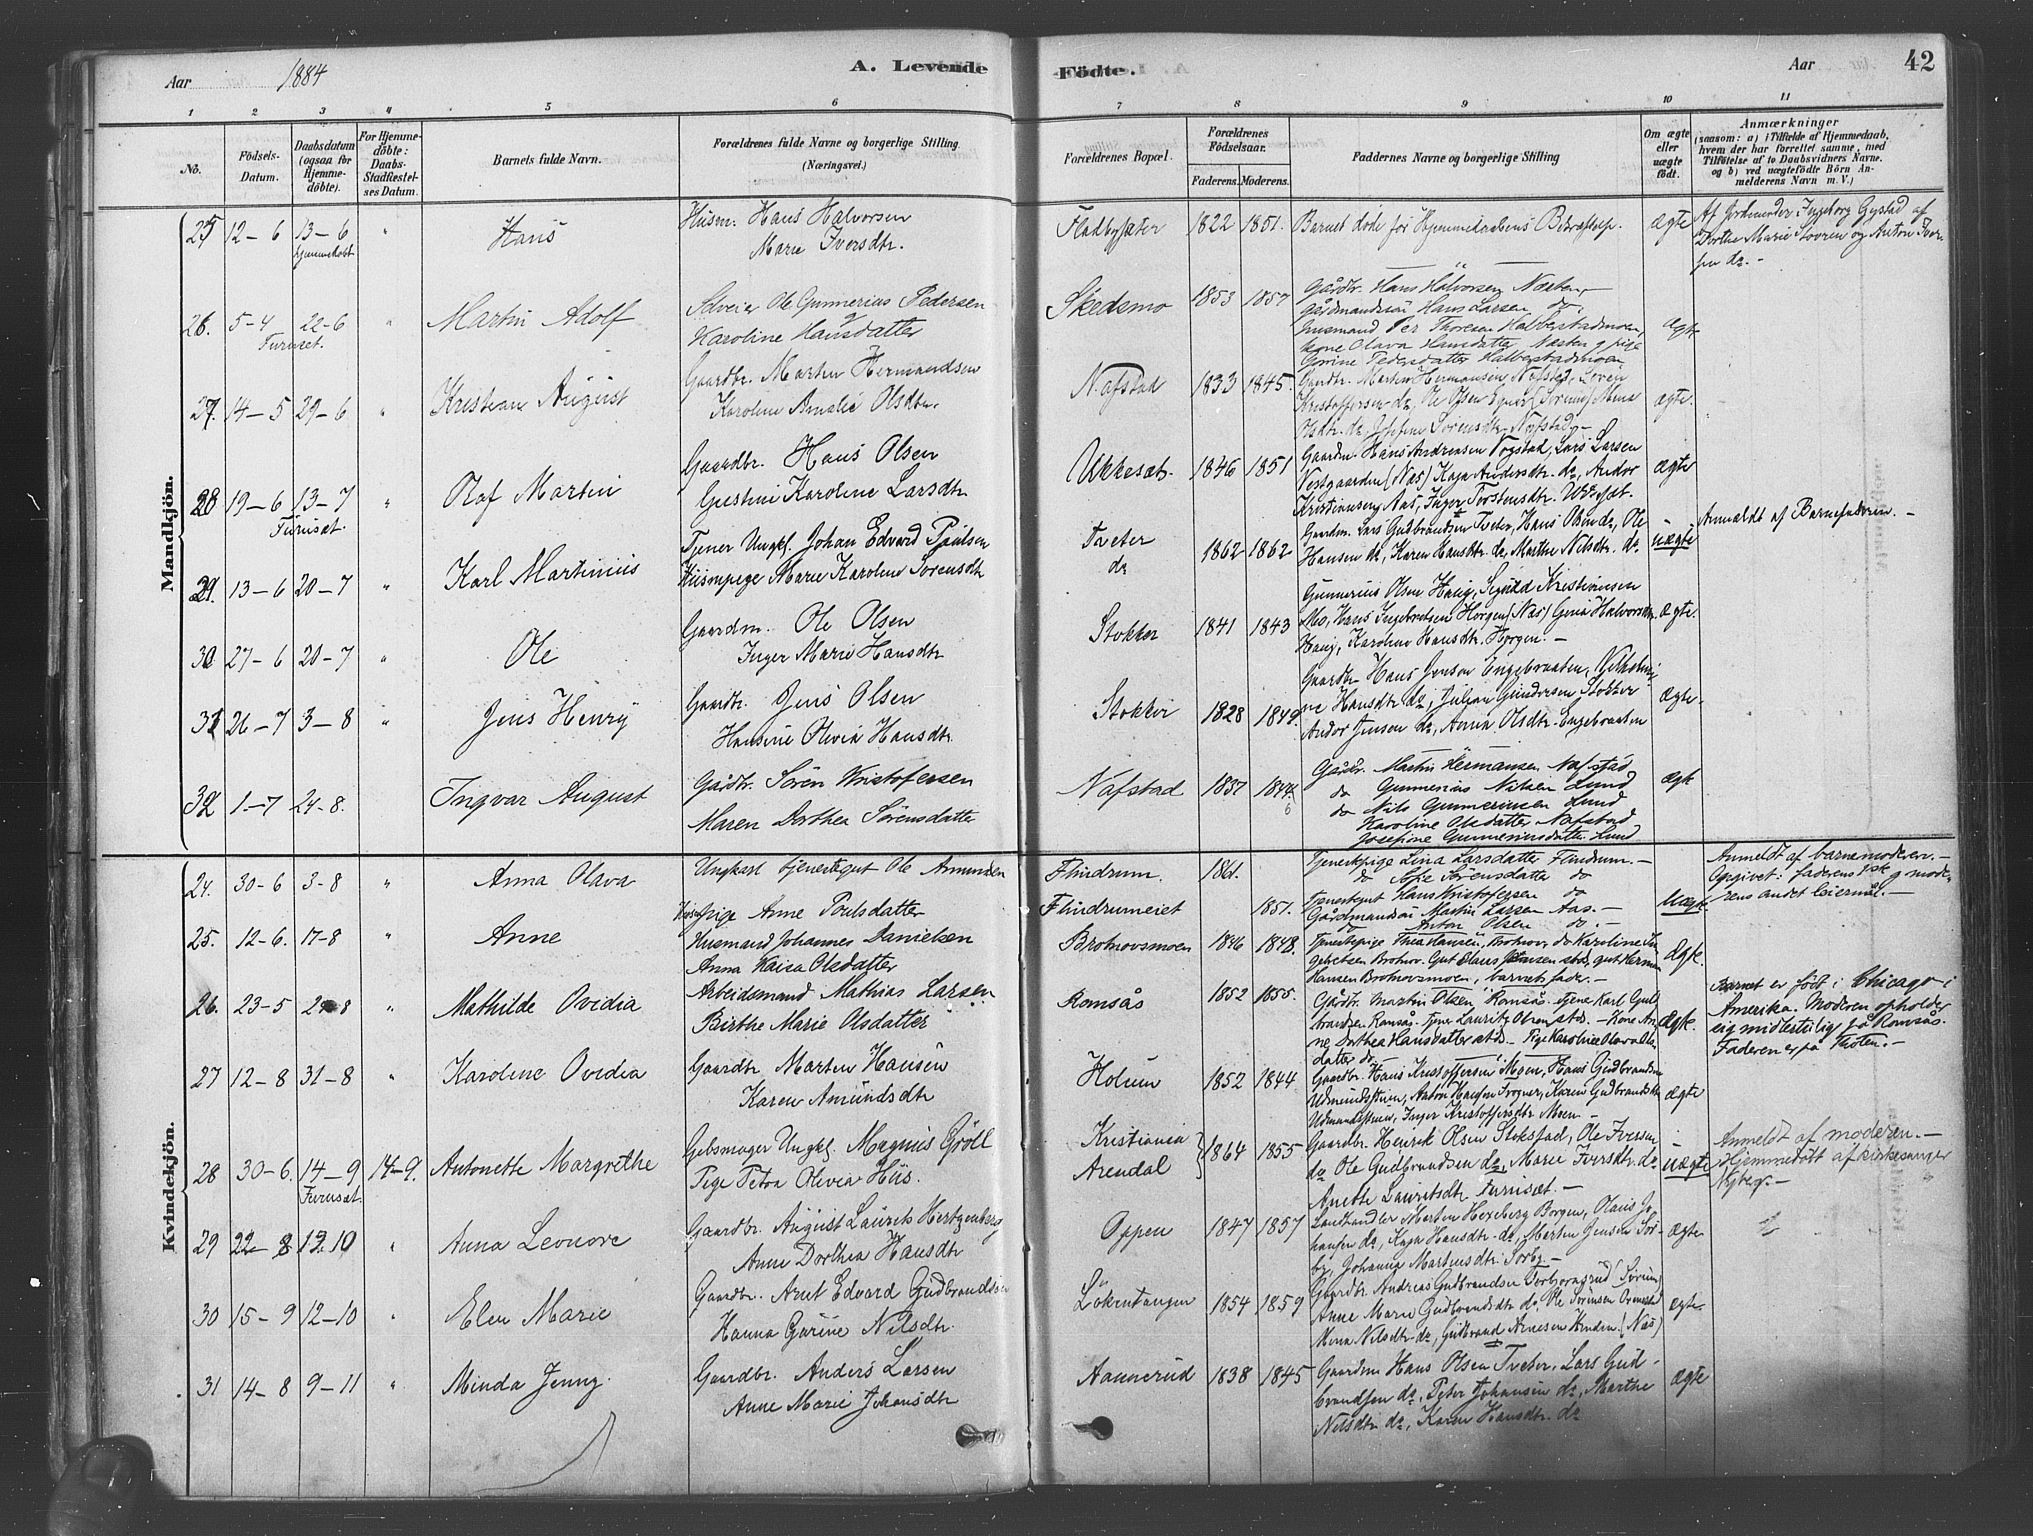 Aar 1884 A. Levende Födte. Aar 42
1 2 3 4 5 6 7 8 9 10 11
No. Födsels-Datum. Daabsdatum (ogsaa for Hjemmedöbte). For Hjemmedöbte: Daabs-Stadfæstelses Datum. Barnets fulde Navn. Forældrenes fulde Navne og borgerlige Stilling (Næringsvei.) Forældrenes Bopæl. Forældrenes Födselsaar. Faderens. Moderens. Faddernes Navne og borgerlige Stilling Om ægte eller uægte födt. Anmærkninger (saasom: a) i Tilfælde af Hjemmedaab, hvem der har forrettet samme, med Tilföielse af to Daabsvidners Navne. og b) ved uægtefödte Börn Anmelderens Navn m. V.)
Mandkjön.
25 12-6 13-6 Hjemmedøbt " Hans Husm. Hans Halvorsen
Marie Iversdtr. Fladbysæter 1822 1851. Barnet døde før Hjemmedaabens Bekræftelse. ægte Af Jordmoder Ingeborg Gystad af
Dorthe Marie Stovren og Anton Iver-
sen do. -
26. 5-4 22-6 Furuset. " Martin Adolf Ole Gunnerius Pedersen
Karoline Hansdatter Skedsmo 1853 1857 Gårdbr. Hans Halvorsen Næsten,
Gårdmandssøn Hans Larsen do,
Husmand Per Thoresen Halbestadmoen,
kone Olava Hansdatter Næsten og pige
Gorine Pedersdatter Halbestadmoen ægt.
27. 14-5 29-6 " Kristian August Gaardbr. Martin Hermandsen
Karoline Amalie Olsdtr. Nafstad 1833 1845. Gaardbr. Martin Hermansen Nafstad, Søren
Kristoffersen do, Ole Olsen (Sørum) Mina
Olsdtr. do, Josefine Sørensdtr. Nafstad - ægte.
28 19-6 13-7 Furuset. " Olaf Martin Gaardbr. Hans Olsen
Gustini Karoline Larsdtr Ukkesæt. 1846 1851 Gaardm. Hans Andreasen Vogstad, Lars Larsen
Vestgaarden (Næs) Kaja Andersdtr. do, Andor
Kristiansen Aas, Inger Torstensdtr. Ukkesæt. ægte
29. 13-6 20-7 " Karl Martinius Tjener Ungkl. Johan Edvard Paulsen
Husmpige Marie Karoline Sørensdtr Tveter
do 1862 1862 Gaardm. Lars Gudbrandsen Tveter, Hans Olsen do, Ole
Hansen do, Karen Hansdtr. do, Marthe Nilsdtr. do. uægte Anmeldt af Barnefaderen. -
30 27-6 20-7 " Ole Gaardm. Ole Olsen
Inger Marie Hansdtr Stokker 1841 1843 Gunnerius Olsen Haug, Sigvald Kristiansen
Mo, Hans Ingebretsen Horgen (Næs) Gina Halvorsdtr.
Haug, Karoline Hansdtr. Horgen. - ægte.
31 26-7 3-8 " Jens Henry Gaardbr. Jens Olsen
Hansine Olivia Hansdtr. Stokker 1828 1849. Gaardbr. Hans Jensen Engebraaten, Vilhelmi-
ne Hansdtr. do, Julian Gundersen Stokker
Andor Jensen do, Anna Olsdtr. Engebraaten ægte.
32 1-7 24-8. Ingvar August Gårdbr. Sören Kristofersen
Maren Dorthea Sörensdatter Nafstad 1837 1844 6 Gårdbr. Martin Hermansen Nafstad
do Gunnerius Nilsen Lund
do Nils Gunneriusen Lund
Karoline Olsdatter Nafstad
Josefine Gunneriusdatter Lund ægt.
Kvindekjön.
24. 30-6 3-8 " Anna Olava Ungkarl tjenestegut Ole Amundsen
pige Anne Poulsdatter Flindrum.
Flindrumeiet 1861.
1851. Tjenestpige Lina Larsdatter Flindrum. -
do Sofie Sörensdatter do
Tjenestegut Hans Kristofersen do
Gårdmandssön Martin Larsen Aas. -
do Anton Olsen do. - Uægt. Anmeldt af barnemoderen. -
Opgivet: faderens 1ste og mode-
rens andet leiermål. -
25. 12-6. 17-8 " Anne Husmand Johannes Danielsen
Anna Kaisa Olsdatter Brotnovsmoen 1846 1848. Tjenestpige Thea Hansen, Brotnov, do Karoline In-
gebretsen Brotnov. Gut Claus Jensen stds, gut Herman
Hansen Brotnovsmoen, barnets fader. - Ægt.
26. 23-5 24-8 " Mathilde Ovidia Arbeidsmand Mathias Larsen
Birthe Marie Olsdatter Romsås 1852 1855. Gårdbr. Martin Olsen Romsås. tjener Karl Gul-
brandsen Romsås. tjener Lauritz Olsen stds. - Kone An-
ne Dorthea Hansdatter stds - Pige Karoline Olava Ols-
datter do ægt. Barnet er født i Chicago i
Amerika. Moderen opholder
sig midlertidig på Romsås.
Faderen er på Thoten. -
27 12-8 31-8 " Karoline Ovidia Gaardbr Martin Hansen
Karen Amundsdtr Holum 1852 1844 Gaardbr. Hans Kristoffersen Moen, Hans Gudbrandsen
Udmundstuen, Anton Hansen Frogner, Karen Gudbrandsdtr
Udmundstuen, Inger Kristoffersdtr. Moen - ægte
28 30-6. 14-9 Furuset 14-9. Antonette Margrethe Gjelmager Ungkl. Magnus Gröll
Pige Petra Olivia Hüs. Kristiania
Arendal 1864 1855 Gaardbr. Henrik Olsen Stokstad, Ole Iversen
do Ole Gudbrandsen do, Marie Iversdtr. do
Anette Lauritsdtr. Furuset. - uægte Anmeldt af moderen. -
Hjemmedøbt af kirkesanger
Nyberg. -
29 22-8 12-10 " Anna Leonore Gaardbr. August Laurits Hertzenberg
Anne Dorthea Hansdtr Oppen 1847 1857 Landhandler Morten Hexeberg Borgen, Olaus Jo-
hansen do, Kaja Hansdtr. do, Morten Jensen Sör-
by, Johanna Martinsdtr. Sorby - ægte
30 15-9 12-10 " Elen Marie Gaardbr. Arnt Edvard Gudbrandsen
Hanna Gurine Nilsdtr. Lökentangen 1854 1859 Gaardbr. Andreas Gudbrandsen Torbjornsrud (Sørum)
Anne Marie Gudbrandsdtr do, Ole Sørensen
Mina Nilsdtr. do, Gudbrand Arnesen Henden (Næs) ægte.
31 14-8 9-11 " Minda Jenny. Gaardbr. Anders Larsen
Anne Marie Johansdtr Aannerud 1838 1845 Gaardm Hans Olsen Tveter, Lars Gud-
brandsen do, Peter Johansen do, Marthe
Nilsdtr do, Karen Hansdtr. do ægte